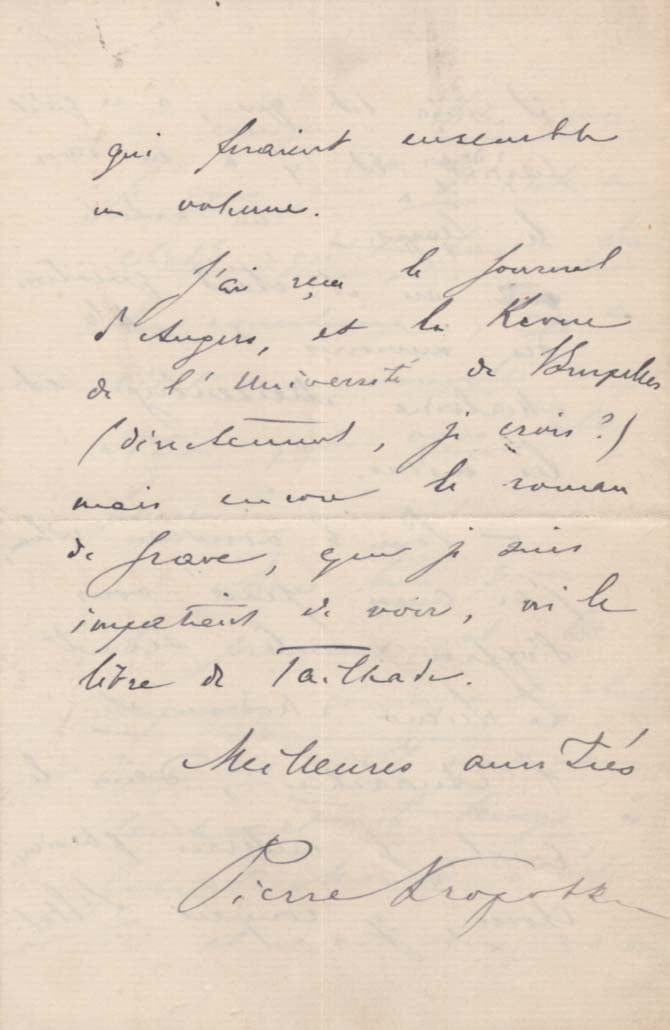 qui feraient ensemble
un volume.
J'ai reçu le Journal
d'Angers, et la Revue
de l'Université de Bruxelles
(directement, je crois?)
mais encore le roman
de Grave, que je suis
impatient de voir, ni le
livre de Tailhade.
Meilleures amitiés
Pierre Kropotkine